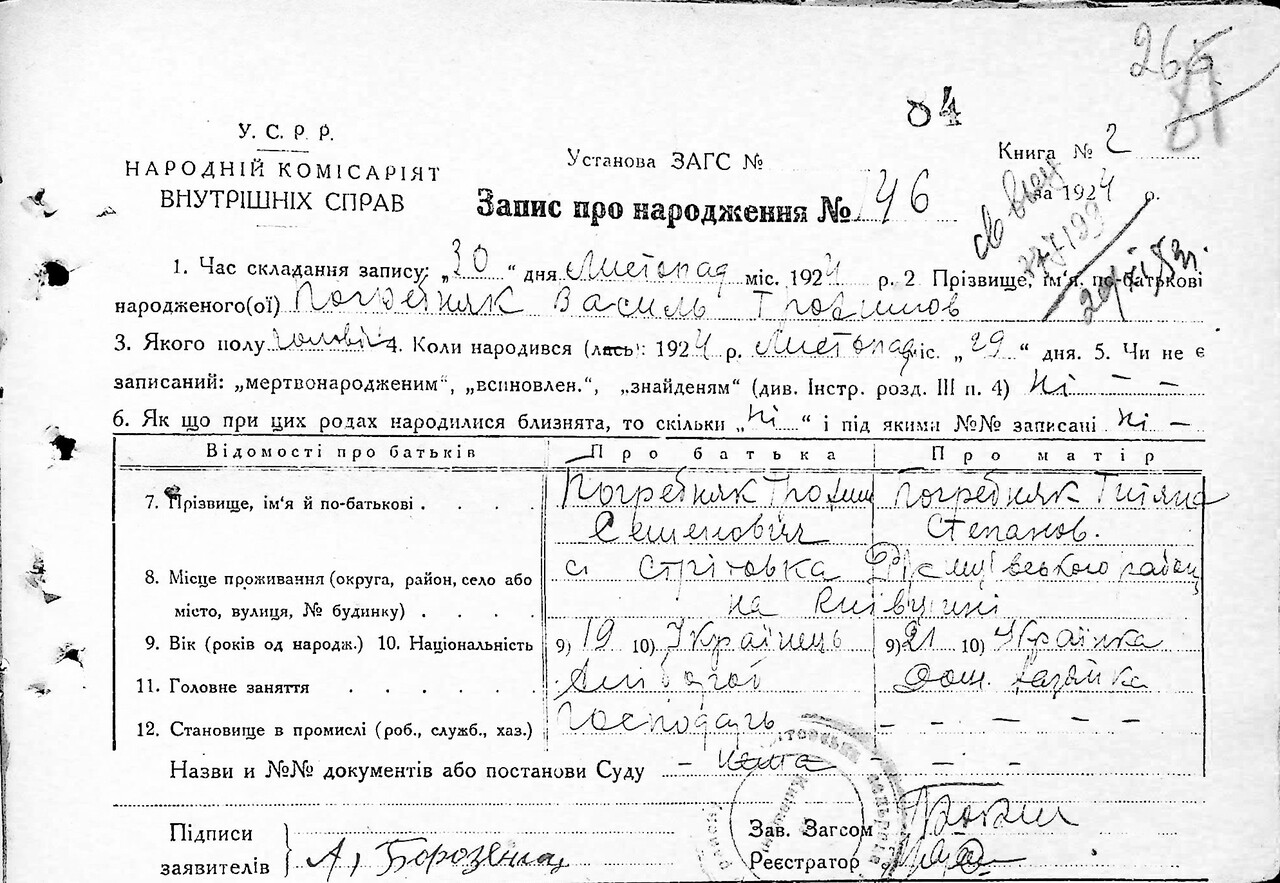 265
81
84
У. С. Р. Р.
НАРОДНІЙ КОМІСАРІЯТ
ВНУТРІШНІХ СПРАВ
Установа ЗАГС №
Книга № 2
за 1924 р.
Запис про народження № 146
1. Час складання запису: „30“ дня Листопад міс. 1924 р. 2 Прізвище, ім'я, по-батькові
народженого(ої) Погребняк Василь Трохимов
3. Якого полу чоловіч 4. Коли народився (лась): 1924 р. Листопад міс. „29“ дня. 5. Чи не є
записаний: „мертвонародженим“, „всиновлен.“, „знайденям“ (див. Інстр. розд. III п. 4) ні — —
6. Як що при цих родах народилися близнята, то скільки „ні“ і під якими №№ записані ні —
Відомості про батьків Про батька Про матір
7. Прізвище, ім'я й по-батькові . . . . Погребняк Трохим Погребняк Титяна
Семенович Степанов.
8. Місце проживання (округа, район, село або с. Стрітовка району
місто, вулиця, № будинку) . . . . на Київщині
9. Вік (років од народж.) 10. Національність 9) 19 10) Українець 9) 21 10) Українка
11. Головне заняття . . . . . . Хлібороб Дом. хазяйка
12. Становище в промислі (роб., служб., хаз.) Господарь — — — — —
Назви и №№ документів або постанови Суду — нема — — —
Підписи
заявителів
А.
Зав. Загсом
Реєстратор